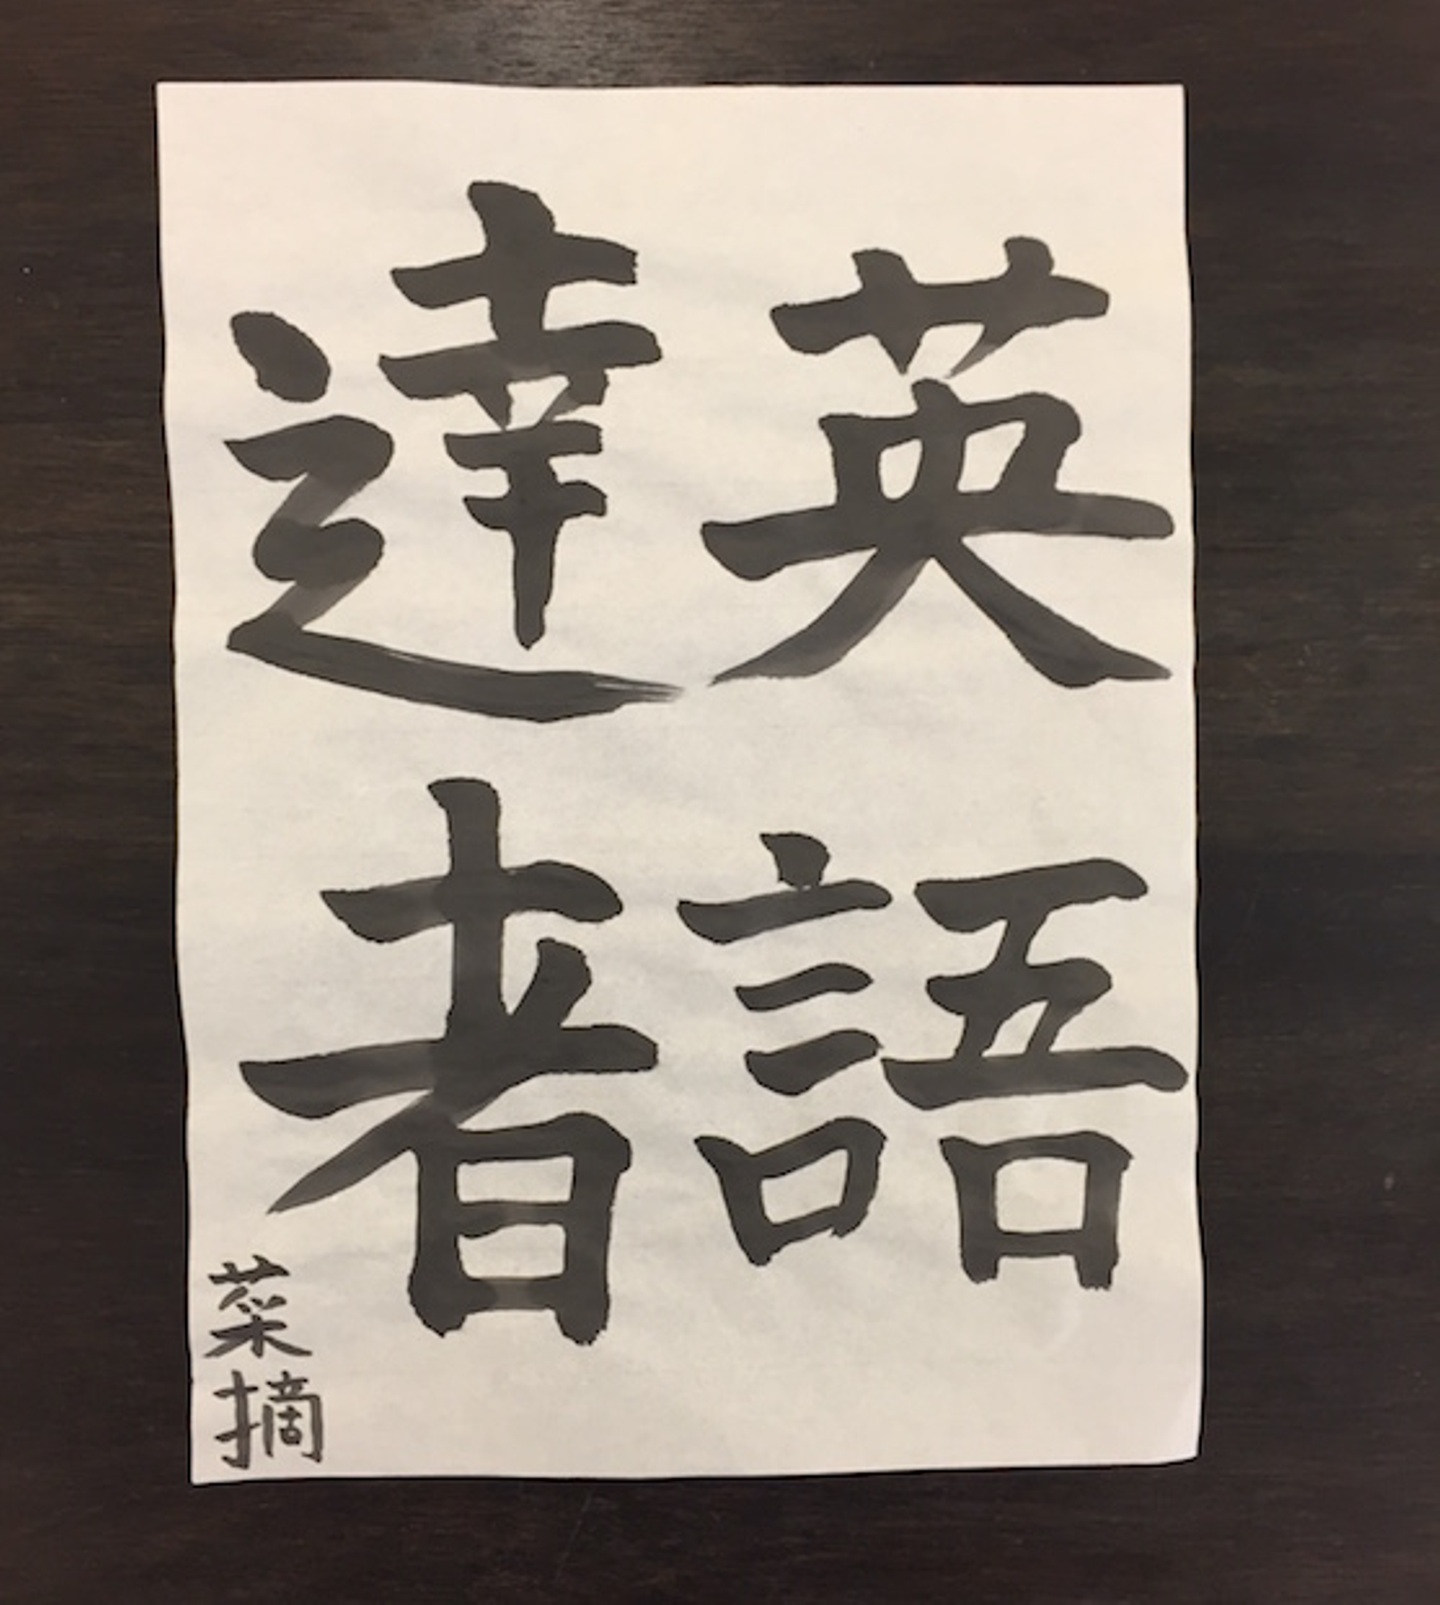 英語
達者
菜摘